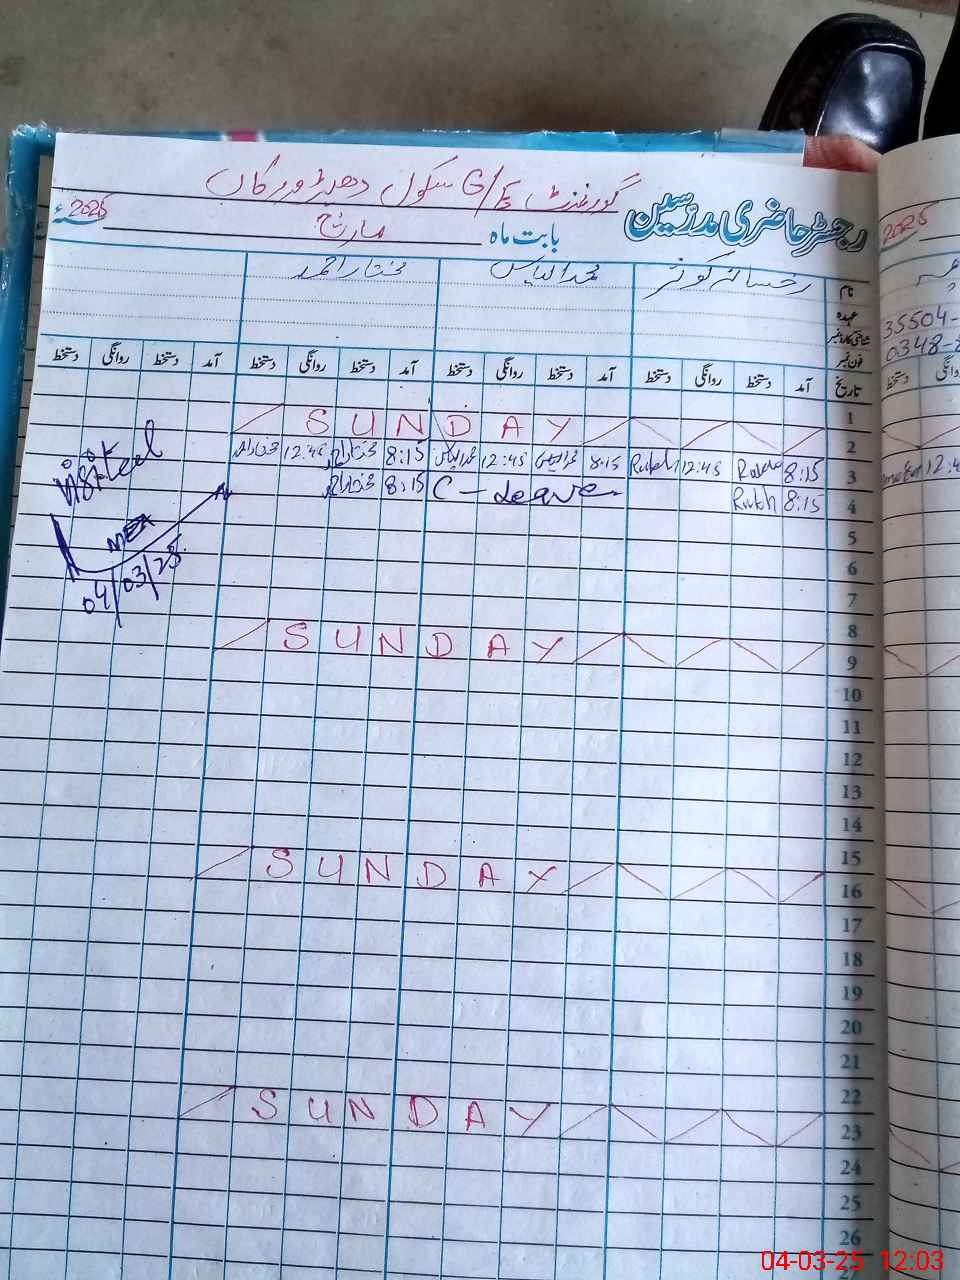 گورنمنٹ G/E سکول
رجسٹر حاضری مدرسین
بابت ماہ مارچ 2025ء
2025
نام رخسانہ کوثر محمد الیاس مختار احمد
عہدہ
شناختی کارڈ نمبر
35504-
فون نمبر
0348-
تاریخ آمد دستخط روانگی دستخط آمد دستخط روانگی دستخط آمد دستخط روانگی دستخط آمد دستخط روانگی دستخط
1
2 SUNDAY
3 8:15 Rukh 12:45 Rukh 8:15 محمد الیاس 12:45 محمد الیاس 8:15 مختار احمد 12:45 مختار احمد
4 8:15 Rukh C-Leave 8:15 مختار احمد
visited
MEA
04/03/25
5
6
7
8
9 SUNDAY
10
11
12
13
14
15
16 SUNDAY
17
18
19
20
21
22
23 SUNDAY
24
25
26
27
04-03-25 12:03